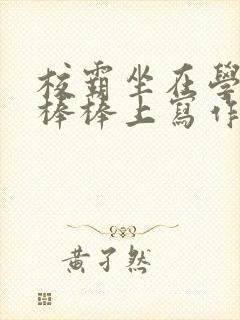 校霸坐在學
棒棒上寫作
黃孑然